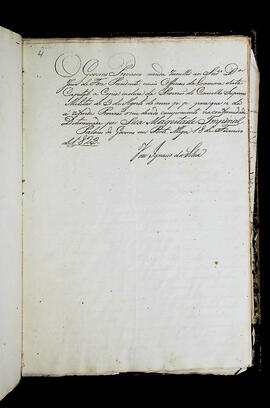 4
O Governo Provisorio manda remetter ao Snr. Dr.
Juiz de Fora Presidente, e mais Officiaes da Camara desta
Capital a Copia inclusa da Provisão do Conselho Supremo
Militar de 13 de Agosto do anno p. p. para que se dê
á referida Provisão o seu devido cumprimento na conformidade
Determinada por Sua Magestade Imperial.
Palacio do Governo em Porto Alegre 18 de Fevereiro
de 1823.
José Ignacio da Silva